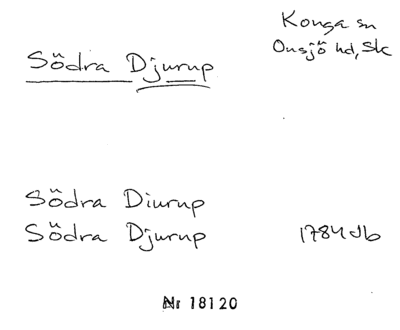 Konga sn
Onsjö hd, Sk
Södra Djurup
Södra Diurup
Södra Djurup 1784 db
Nr 18120